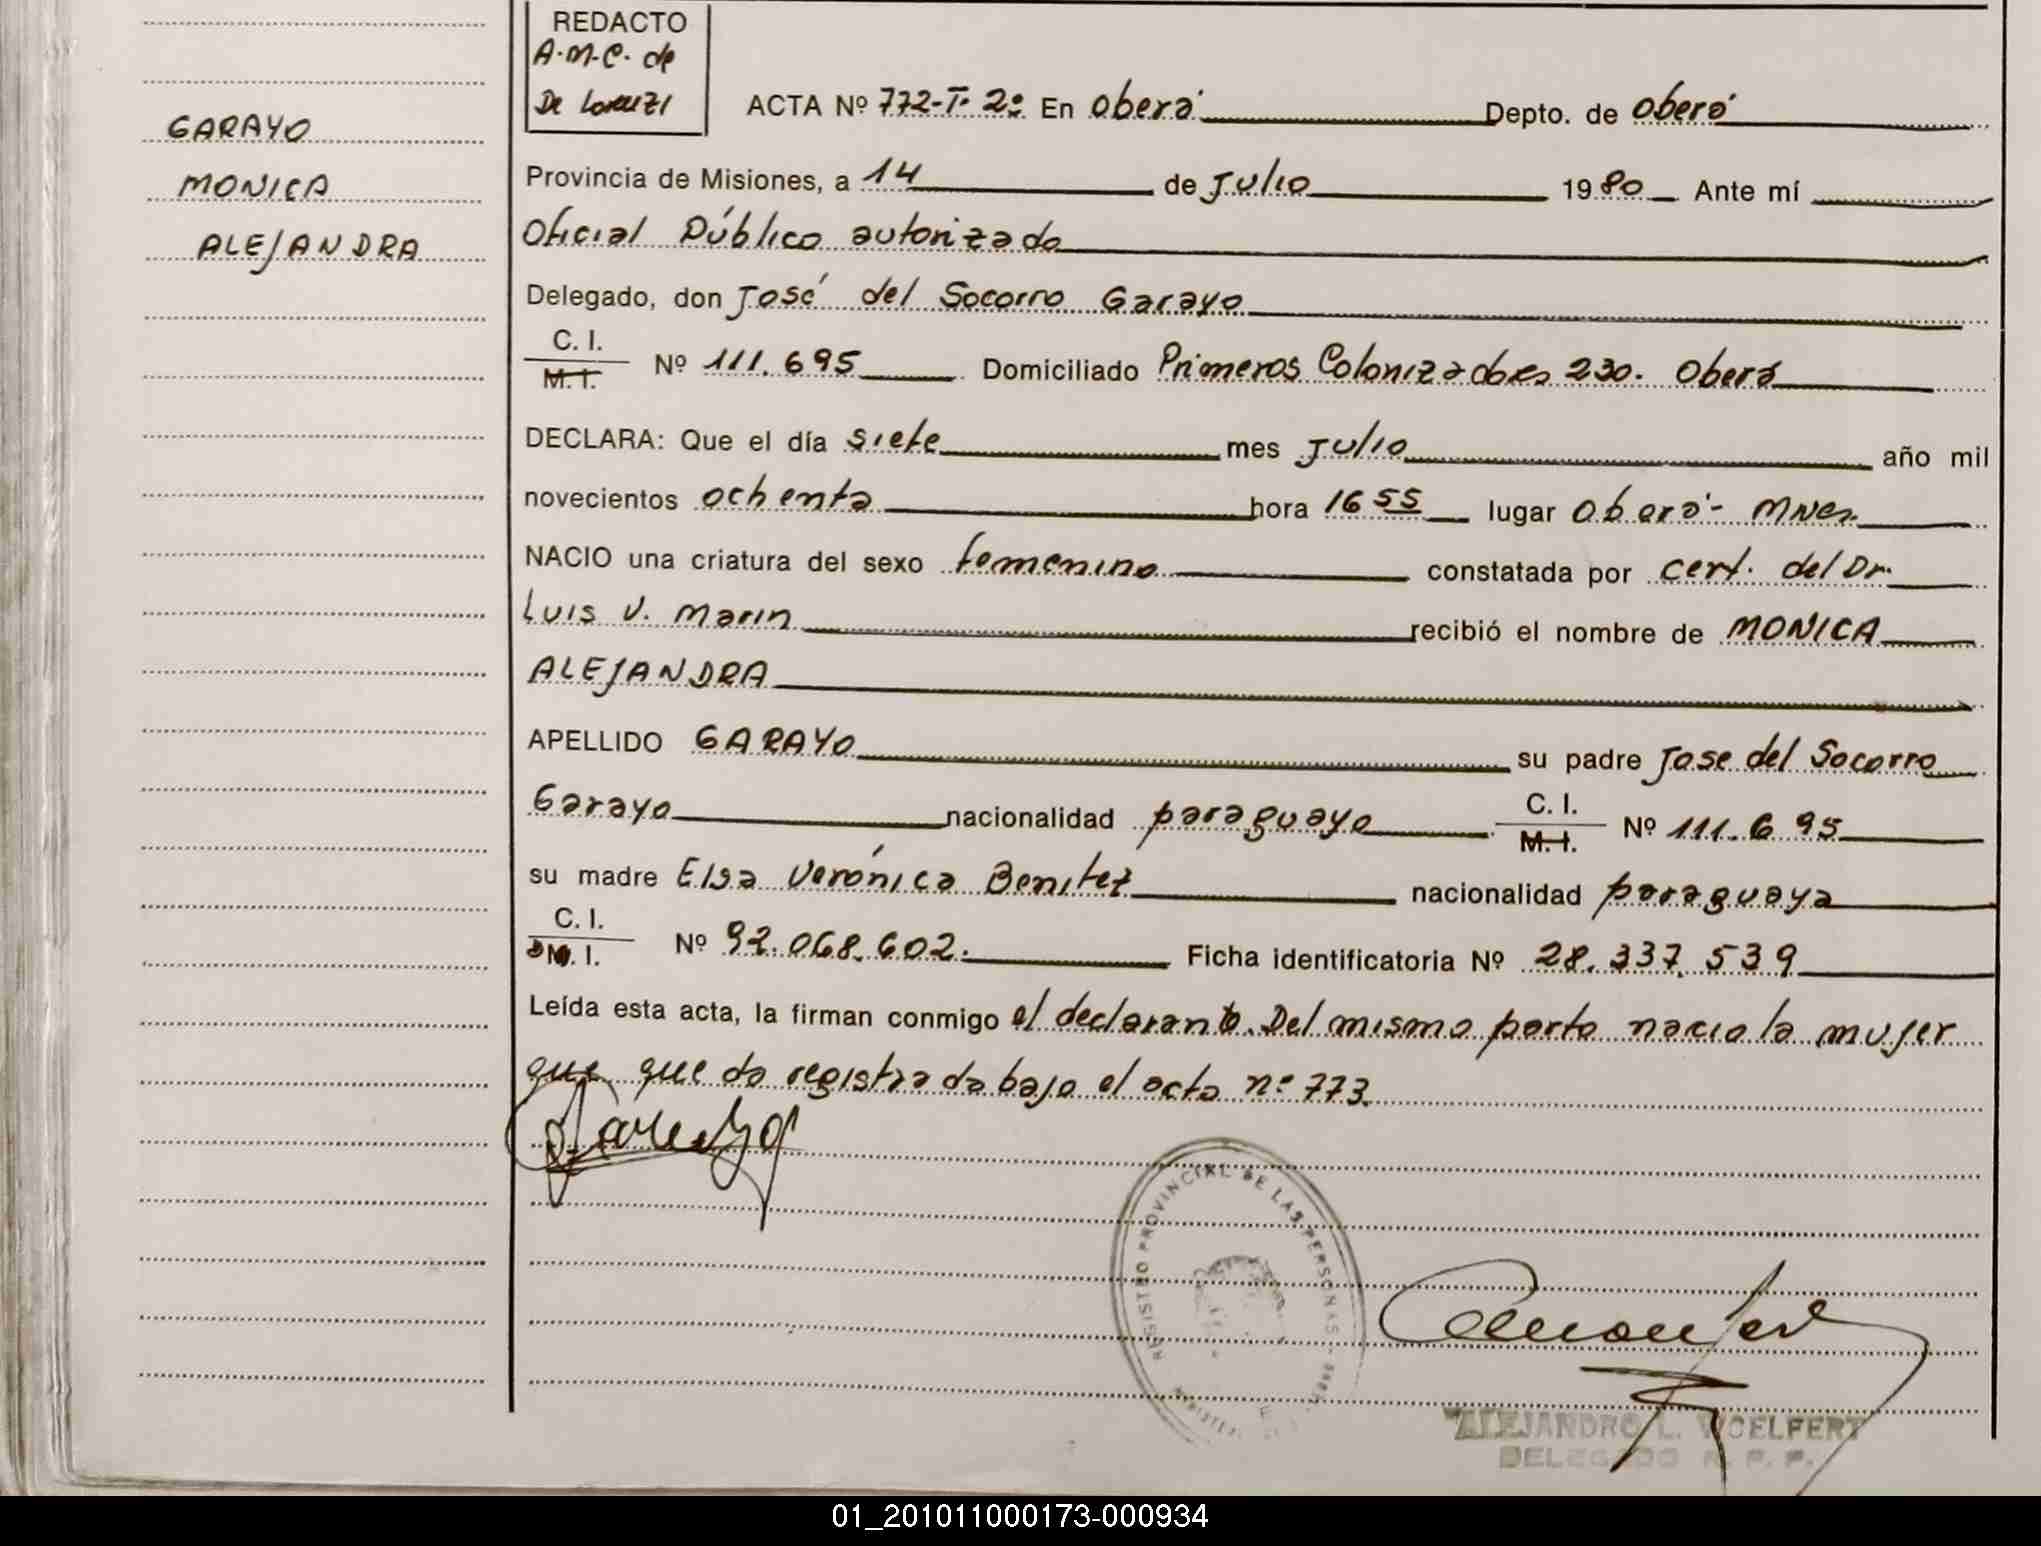 REDACTO
A.M.C. de
De Lorenzi
GARAYO
MONICA
ALEJANDRA
ACTA Nº 772-T. 2º En Oberá Depto. de Oberá
Provincia de Misiones, a 14 de Julio 1980 Ante mí
Oficial Público autorizado
Delegado, don José del Socorro Garayo
C. I.
M. I. Nº 111.695 Domiciliado Primeros Colonizadores 230. Oberá
DECLARA: Que el día siete mes Julio año mil
novecientos ochenta hora 16 55 lugar Oberá- Mnes.
NACIO una criatura del sexo femenino constatada por cert. del Dr.
Luis V. Marin recibió el nombre de MONICA
ALEJANDRA
APELLIDO GARAYO su padre Jose del Socorro
Garayo nacionalidad paraguayo C. I. M. I. Nº 111.695
su madre Elsa Verónica Benitez nacionalidad paraguaya
C. I.
M. I. Nº 92.068.602. Ficha identificatoria Nº 28.337.539
Leída esta acta, la firman conmigo el declarante. Del mismo parto nacio la mujer
que queda registrada bajo el acta nº 773.
REGISTRO PROVINCIAL DE LAS PERSONAS
ALEJANDRO L. WOELFERT
DELEGADO R. P. P.
01_201011000173-000934